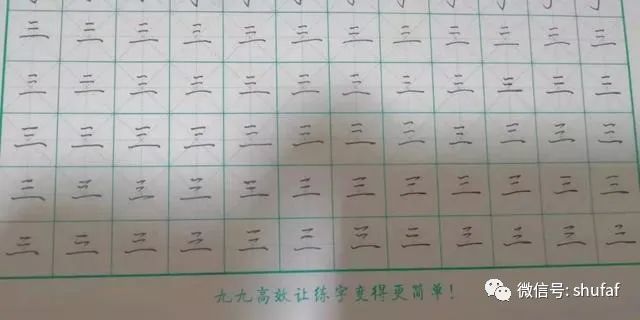 三三三三三三三三三三三三
三三三三三三三三三三三三
三三三三三三三三三三三三
三三三三三三三三三三三三
三三三三三三三三三三三三
九九高效让练字变得更简单!
微信号: shufaf